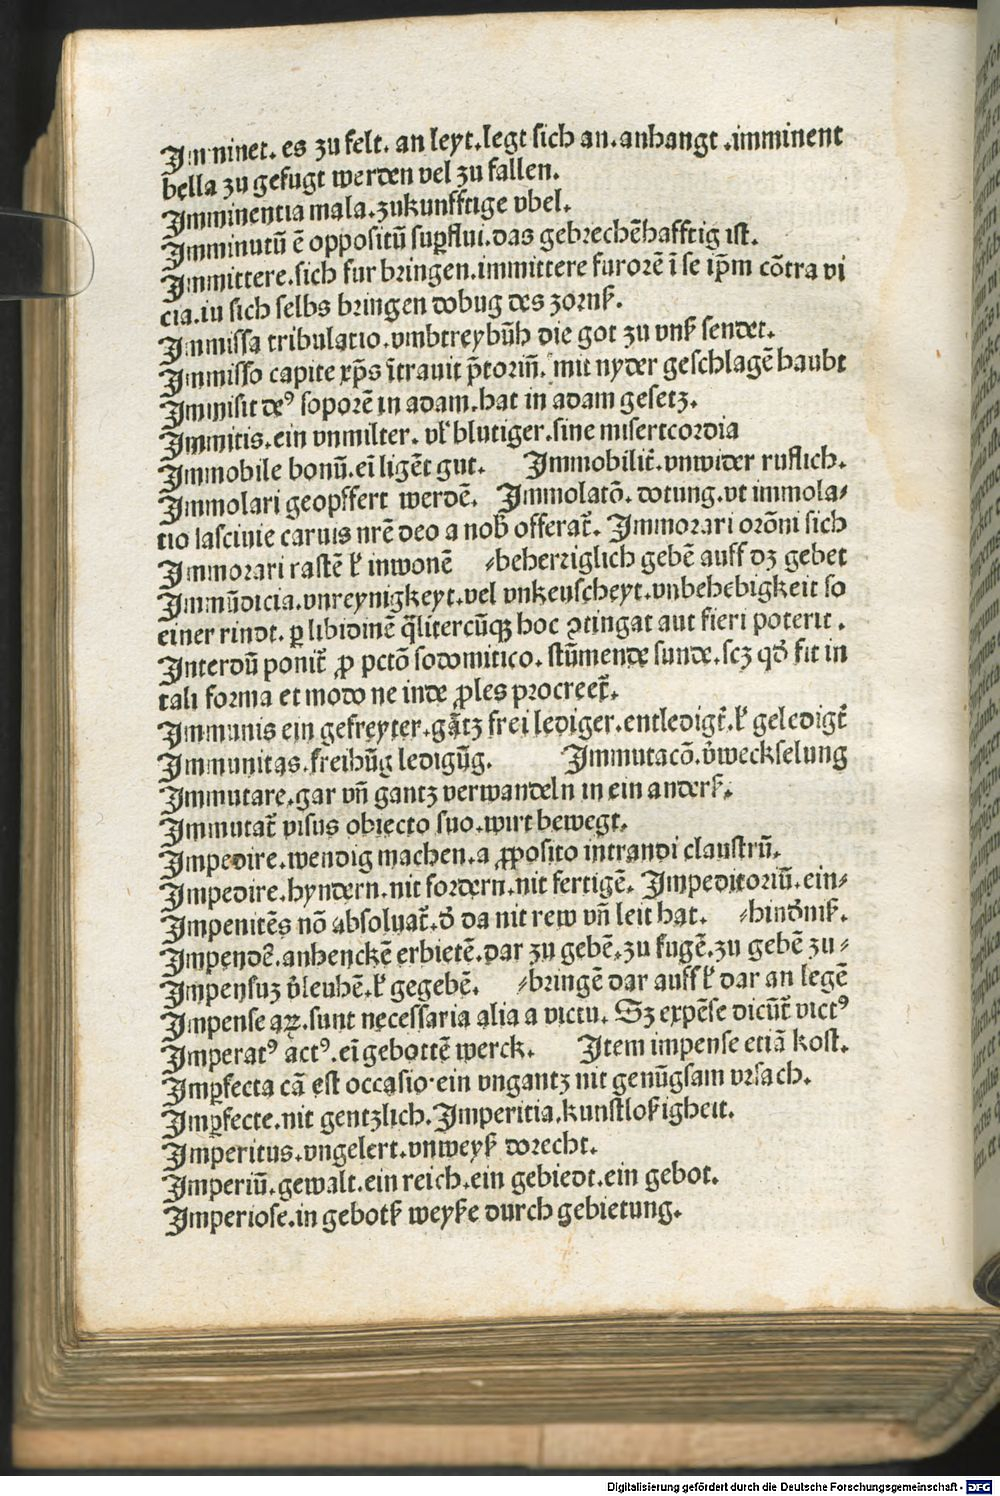 Imminet. es zu felt. an leyt. legt sich an. anhangt. imminent
bella zu gefugt werden vel zu fallen.
Imminentia mala. zukunfftige vbel.
Imminutū ē oppositū suꝑflui. das gebrechēhafftig ist.
Immittere. sich fur bringen. immittere furorē ī se ip̄m cōtra vi
cia. in sich selbs bringen dobug des zornß.
Immissa tribulatio. vmbtreybūh die got zu vnß sendet.
Immisso capite xp̄s ītrauit p̄toriū. mit nyder geschlagē haubt
Immisit deꝰ soporē in adam. hat in adam gesetz.
Immitis. ein vnmilter. vł blutiger. sine misertcordia
Immobile bonū. eī ligēt gut. Immobilit̄. vnwider ruflich.
Immolari geopffert werdē. Immolatō. dotung. vt immola⸗
tio lasciuie carnis nrē deo a nob̄ offerat̄. Immorari orōni sich
Immorari rastē ł inwonē ⸗beherziglich gebē auff dz gebet
Immūdicia. vnreynigkeyt. vel vnkeuscheyt. vnbehebigkeit so
einer rindt. ꝑ libidinē q̄litercūqꝫ hoc ꝯtingat aut fieri poterit.
Interdū ponit̄ ꝓ pctō sodomitico. stūmende sunde. scꝫ qđ fit in
tali forma et modo ne inde ꝓles procreet̄.
Immunis ein gefreyter. gātz frei lediger. entledigt. ł geledigt̄
Immunitas. freihūg ledigūg. Immutacō. v̄weckselung
Immutare. gar vn̄ gantz verwandeln in ein anderß.
Immutat̄ visus obiecto suo. wirt bewegt.
Impedire. wendig machen. a ꝓposito intrandi claustrū.
Impedire. hyndern. nit fordern. nit fertigē. Impeditoriū. ein⸗
Impenitēs nō absoluat̄. đ da nit rew vn̄ leit hat. ⸗hindniß.
Impendē. anhenckē erbietē. dar zu gebē. zu fugē. zu gebē zu⸗
Impensuꝫ v̄leuhē. ł gegebē. ⸗bringē dar auff ł dar an legē
Impense aꝝ. sunt necessaria alia a victu. Sꝫ expēse dicūt̄ victꝰ
Imperatꝰ actꝰ. eī gebottē werck. Item impense etiā kost.
Imꝑfecta cā est occasio. ein vngantz nit genūgsam vrsach.
Imꝑfecte. nit gentzlich. Imperitia. kunstloßigheit.
Imperitus. vngelert. vnweyß dorecht.
Imperiū. gewalt. ein reich. ein gebiedt. ein gebot.
Imperiose. in gebotß weyße durch gebietung.
Digitalisierung gefördert durch die Deutsche Forschungsgemeinschaft - DFG